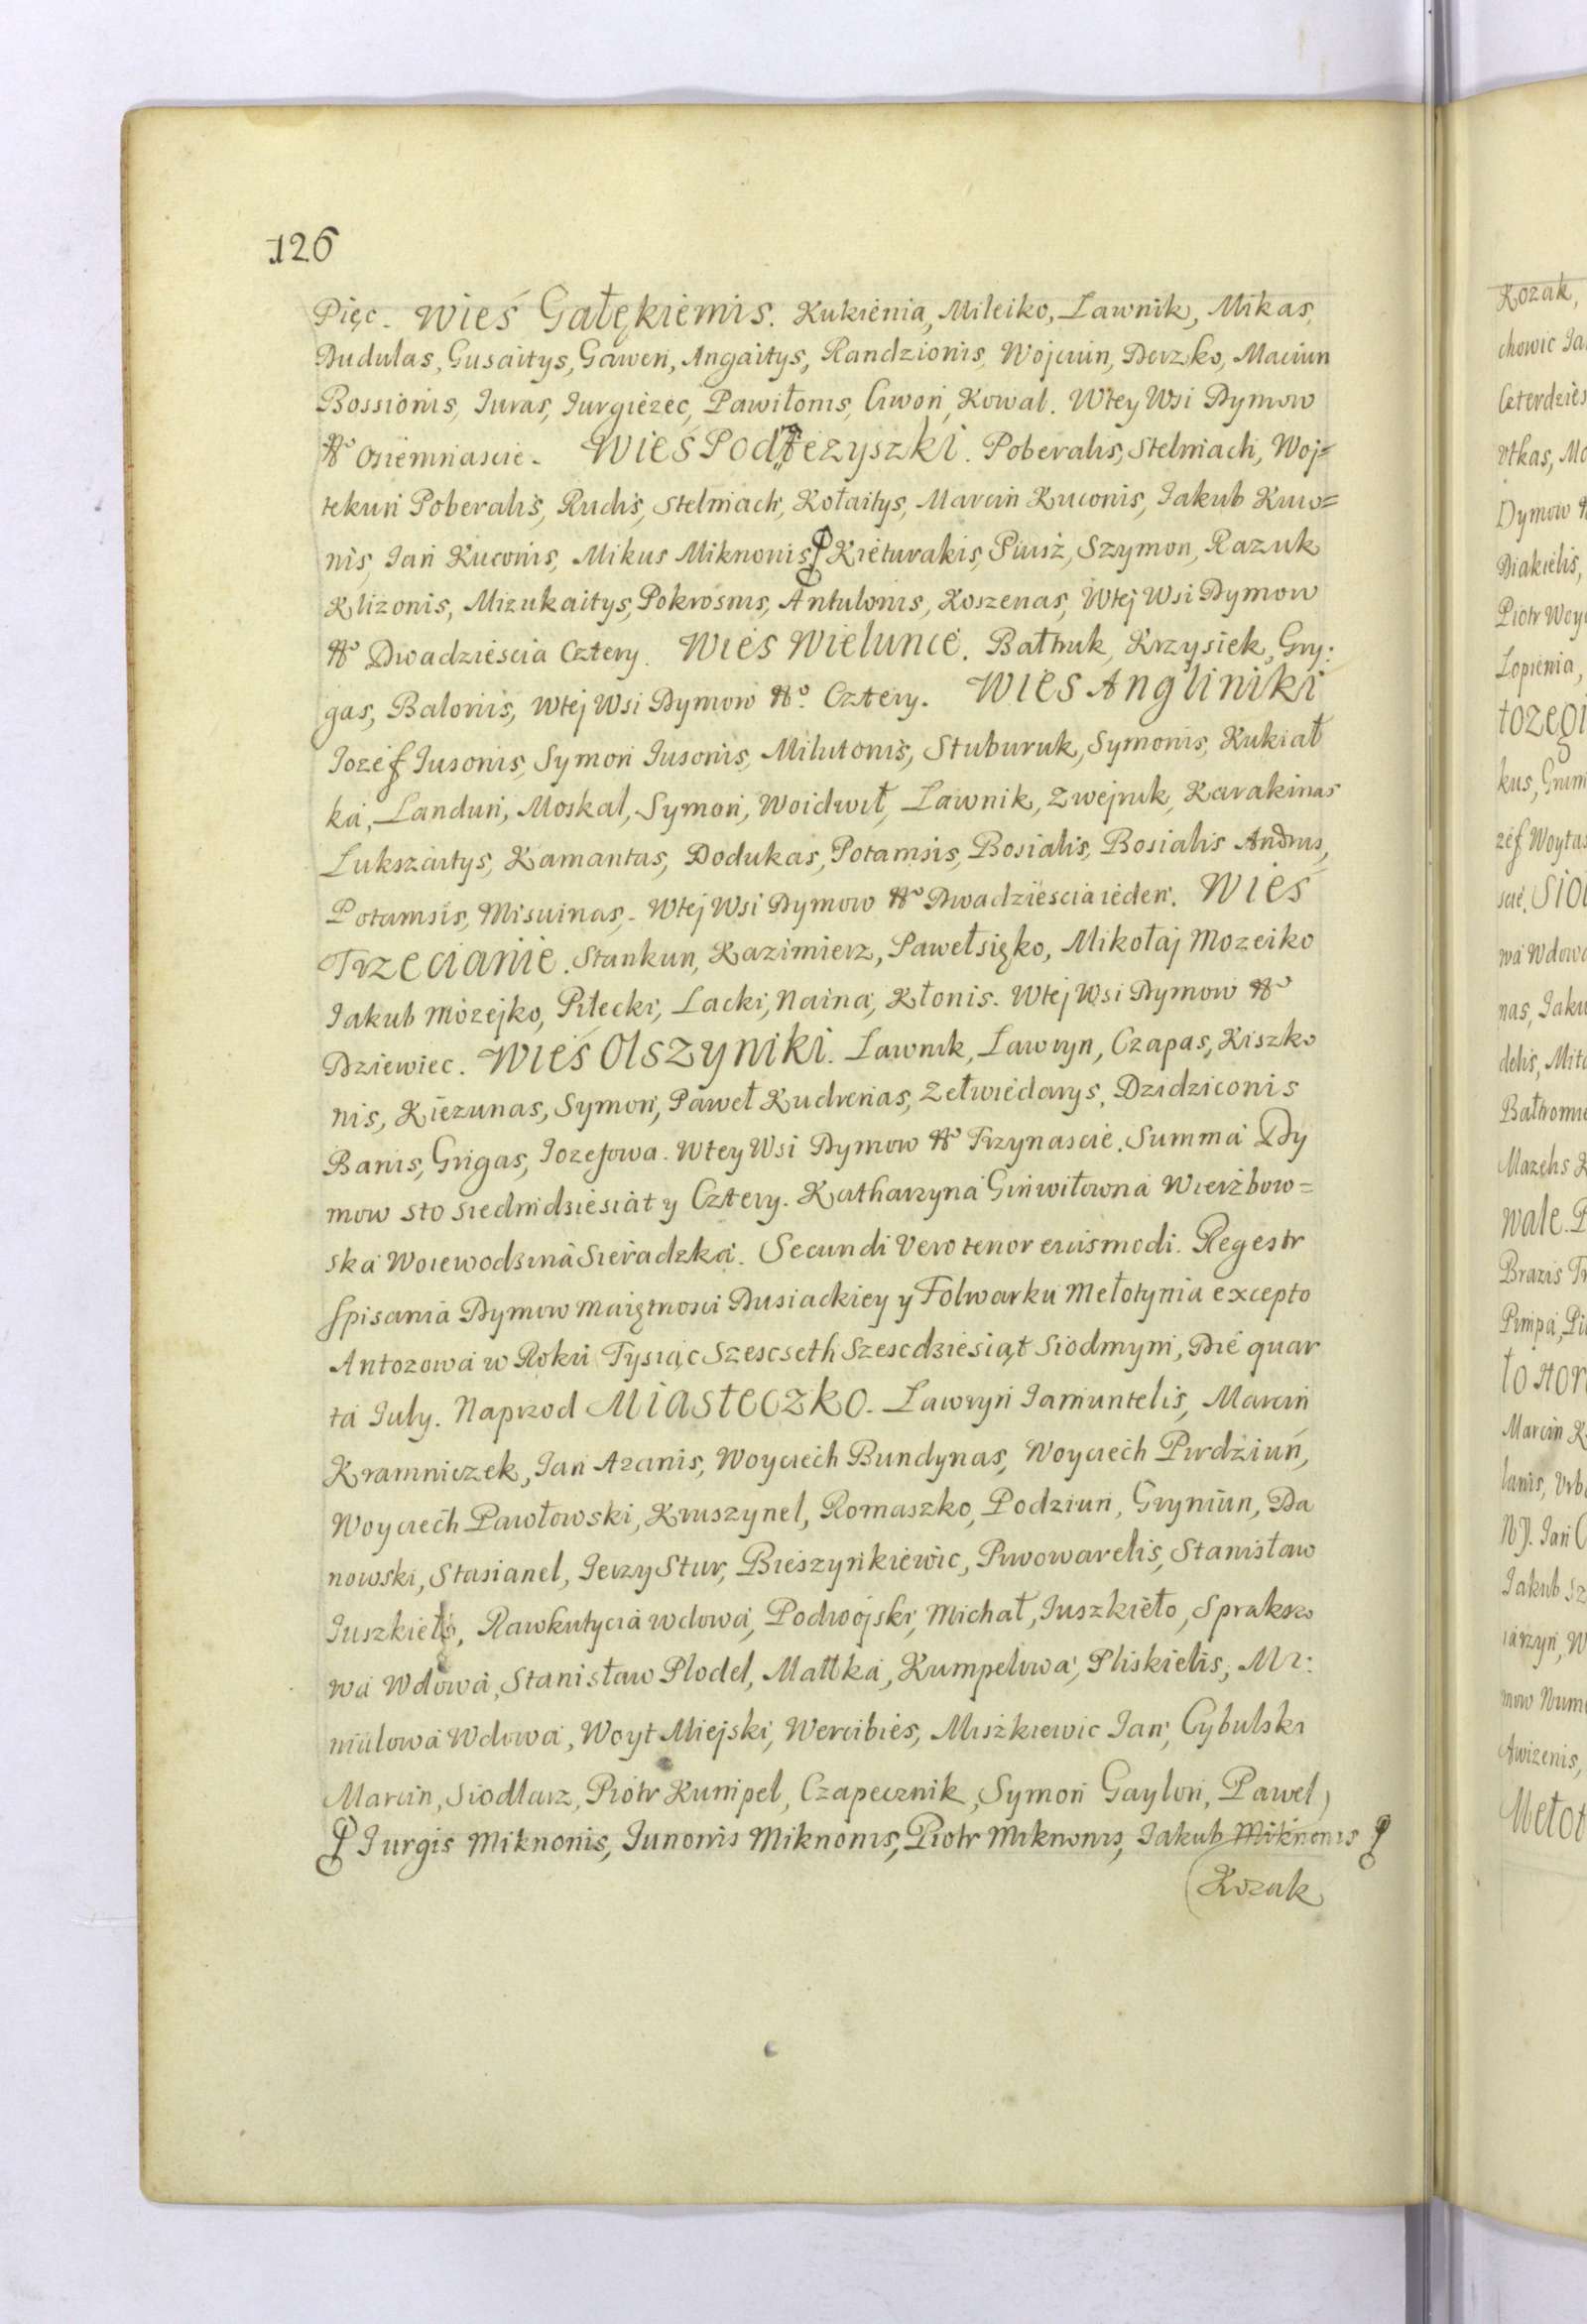 126
Pięc. Wieś Gałękiemis. Kukienia, Mileiko, Lawnik, Mikas,
Dudulas, Gusaitys, Gawen, Angaitys, Randzionis, Wojciun, Derzko, Maciun
Bossionis, Iuras, Iurgiezec, Pawiłonis, Ciwoń, Kowal. Wtey Wsi Dymow
No Osiemnascie. Wieś Podbezyszki. Poberalis, Stelmach, Woj=
tekun Poberalis, Rudis, Stelmach, Kołaitys, Marcin Kuconis, Iakub Kuco=
nis, Ian Kuconis, Mikus Miknonis, Kieturakis, Piusż, Szymon, Razuk
Klizonis, Mizukaitys, Pokrosnis, Antulonis, Koszenas, Wtej Wsi Dymow
No Dwadziescia Cztery. Wieś Wielunce. Bałtruk, Krzysiek, Gry:
gas, Balonis, Wtej Wsi Dymow No. Cztery. Wieś Angliniki
Iozef Iusonis, Symon Iusonis, Milutonis, Stuburuk, Symonis, Kukiał
ka, Landun, Moskal, Symon, Woidwił, Ławnik, Zwejnik, Karakinas
Lukszaitys, Kamantas, Dodukas, Potamsis, Bosialis, Bosialis Andrus,
Potamsis, Misiunas, Wtej Wsi Dymow No Dwadziescia ieden. Wieś
Trzecianie. Stankun, Kazimierz, Pawełsięko, Mikołaj Mozeiko
Iakub Mozejko, Piłecki, Lacki, Naina, Kłonis. Wtej Wsi Dymow No
Dziewiec. Wieś Olszyniki. Lawnik, Lawryn, Czapas, Kiszko
nis, Kiezunas, Symon, Paweł Kudrenas, Zełwiedarys, Dzidziconis
Banis, Grigas, Iozefowa. Wtey Wsi Dymow No Trzynascie. Summa Dy
mow sto siedmdziesiat y Cztery. Katharzyna Ginwiłowna Wierżbow=
ska Woiewodzina Sieradzka. Secundi Vero tenor eiusmodi. Regestr
spisania Dymow maiętnosci Dusiackiey y Folwarku Mełotynia excepto
Antozowa w Roku Tysiąc Szescseth Szescdziesiąt Siodmym, Die quar
ta Iuly. Naprzod Miasteczko. Lawryn Iamuntelis, Marcin
Kramniczek, Ian Azanis, Woyciech Bundynas, Woyciech Pirdziuń,
Woyciech Pawłowski, Kruszynel, Romaszko, Podziun, Gryniun, Da
nowski, Stasianel, Ierzy Stur, Bieszynkiewic, Piwowarelis, Stanisław
Iuszkieło, Rawkutycia wdowa, Podwojski, Michał, Iuszkieło, Sprakso
wa Wdowa, Stanisław Plodel, Matłka, Kumpelowa, Pliskielis, Mi:
niulowa Wdowa, Woyt Miejski, Wercibies, Miszkiewic Ian, Cybulski
Marcin, Siodlarz, Piotr Kumpel, Czapecznik, Symon Gaylon, Pawel,
Iurgis Miknonis, Iunonis Miknonis, Piotr Miknonis, Iakub Miknonis
Kozak